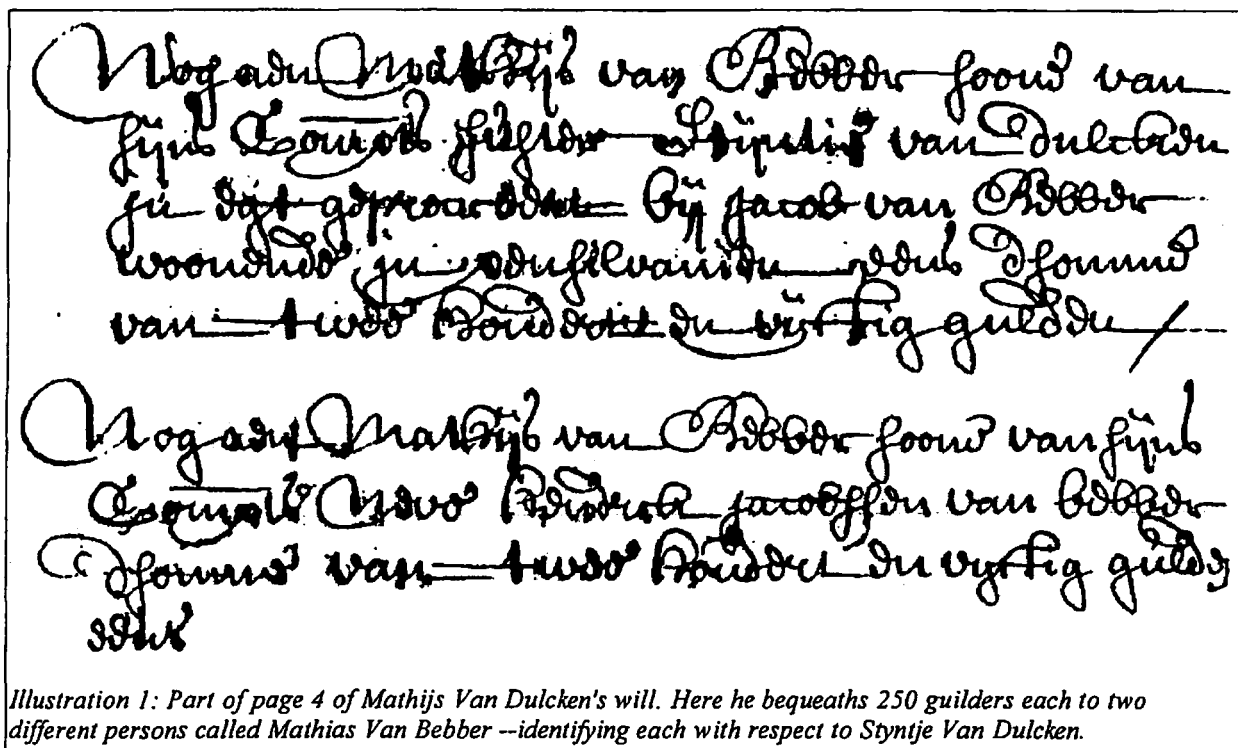 Nog aen Mathijs van Bebber soone van
sijns Comp.ts suster Stijntie van Dulcken
in egt geprocreeert bij jacob van Bebber
woonende in pensilvanien eene somme
van twee hondert en vijftig gulden /
Nog aen Mathijs van Bebber soone van sijns
Comp.ts Neve Hendrick jacobssen van bebber
somme van twee hondert en vyftig gulde
eens
Illustration 1: Part of page 4 of Mathijs Van Dulcken's will. Here he bequeaths 250 guilders each to two
different persons called Mathias Van Bebber --identifying each with respect to Styntje Van Dulcken.